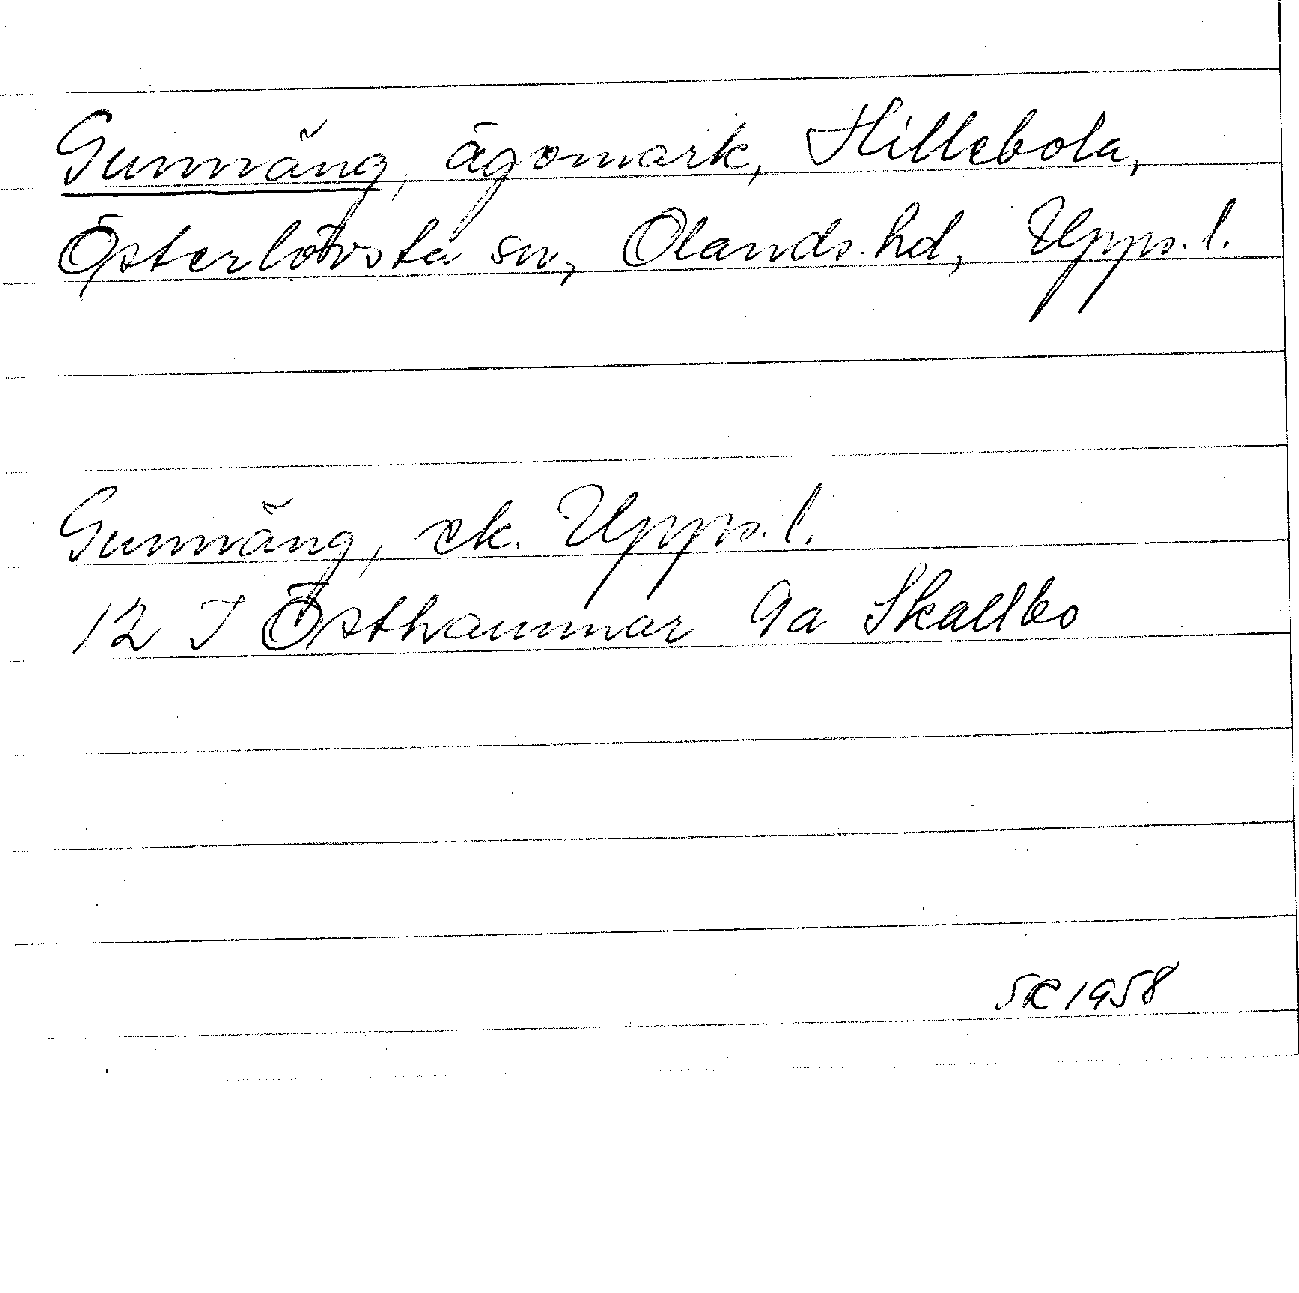 Gunnäng, ägomark, Hillebola,
Österlövsta sn, Olands hd, Upps. l.
Gunnäng, ek. Upps. l.
12 I Östhammar 9a Skallbo
SR 1958